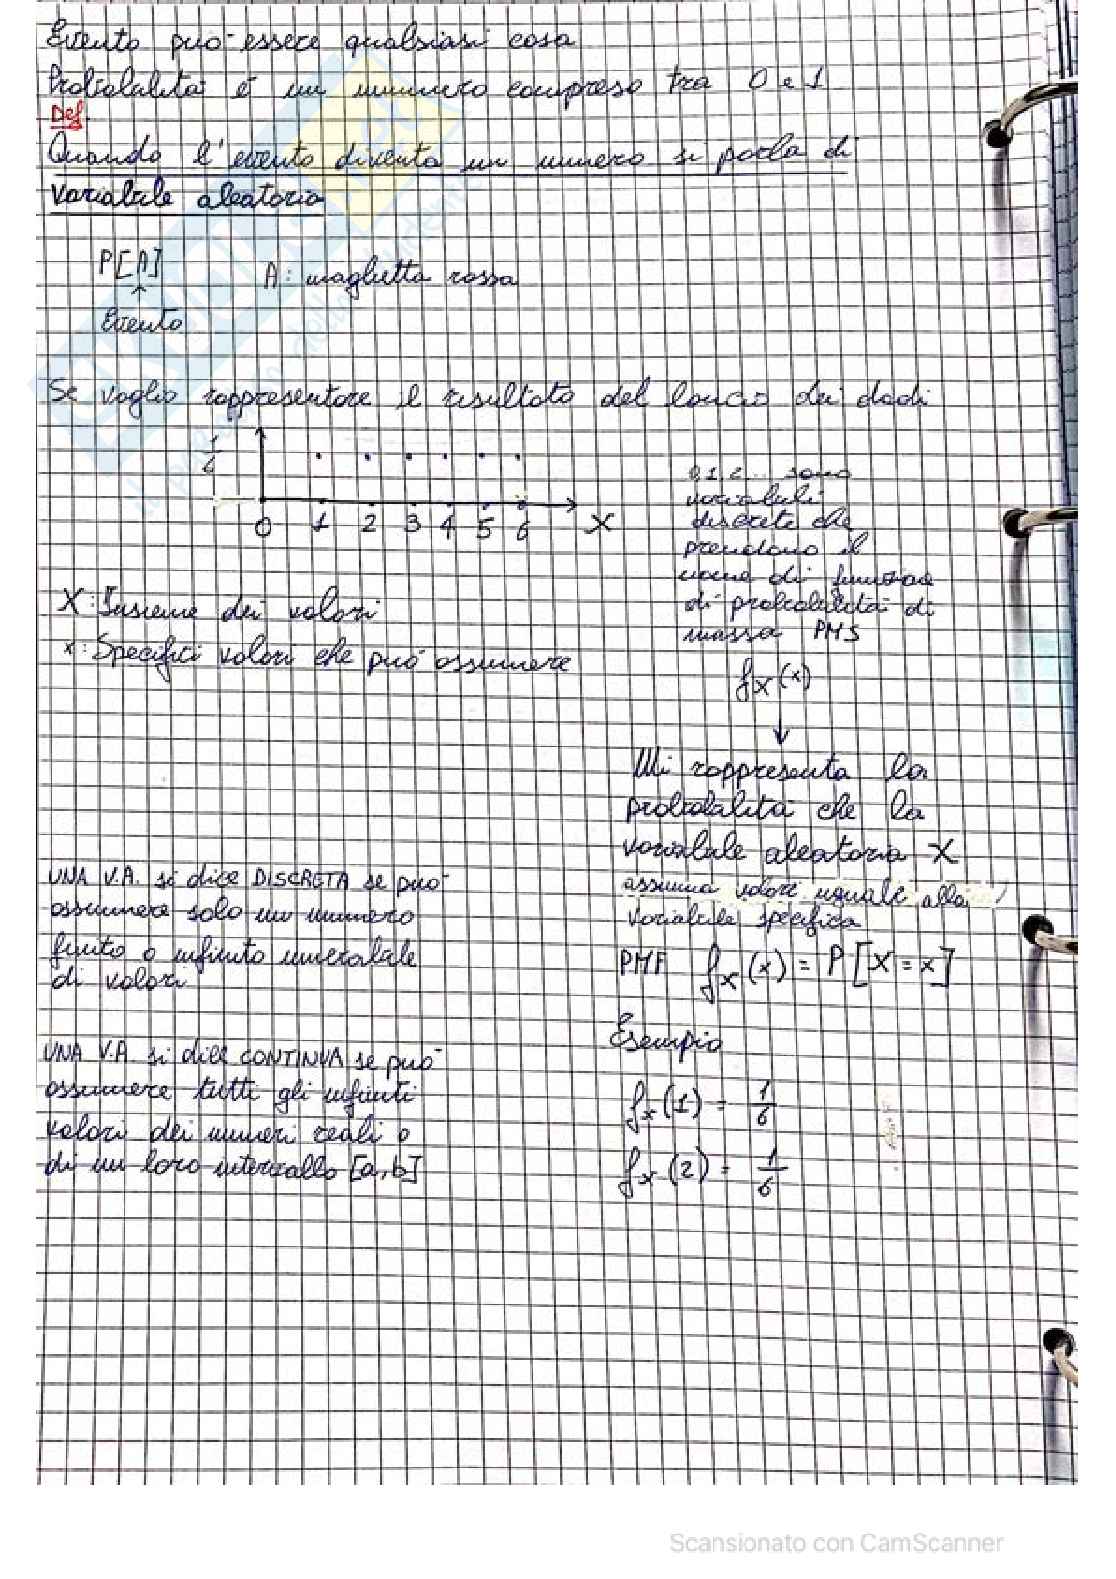 Evento può essere qualsiasi cosa
Probabilità è un numero compreso tra 0 e 1
Def.
Quando l'evento diventa un numero si parla di
variabile aleatoria
P[A]
A: maglietta rossa
Evento
Se voglio rappresentare il risultato del lancio dei dadi
1/6
0 1 2 3 4 5 6 X
X: Insieme dei valori
x: Specifici valori che può assumere
0,1,2... sono
variabili
discrete che
prendono il
nome di funzione
di probabilità di
massa PMS
fx(x)
Mi rappresenta la
probabilità che la
variabile aleatoria X
assuma valore uguale alla
variabile specifica
PMF fx(x) = P[X = x]
Esempio
fx(1) = 1/6
fx(2) = 1/6
UNA V.A. si dice DISCRETA se può
assumere solo un numero
finito o infinito numerabile
di valori
UNA V.A. si dice CONTINUA se può
assumere tutti gli infiniti
valori dei numeri reali o
di un loro intervallo [a,b]
Scansionato con CamScanner